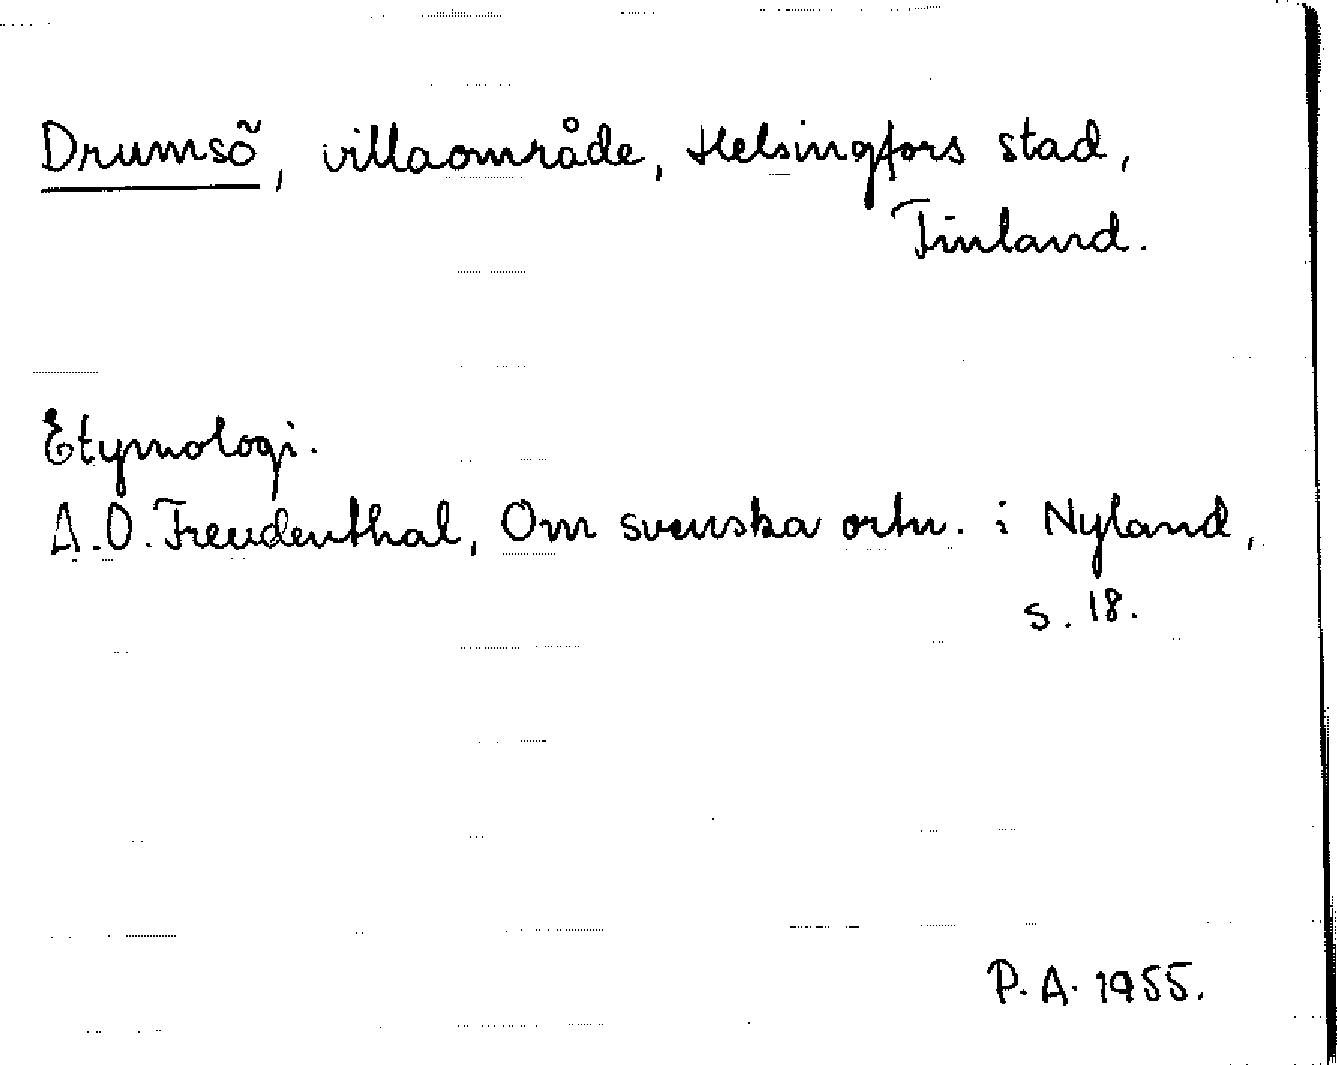 Drumsö, villaområde, Helsingfors stad,
Finland.
Etymologi.
A.O. Freudenthal, Om svenska ortn. i Nyland,
s. 18.
P.A. 1955.